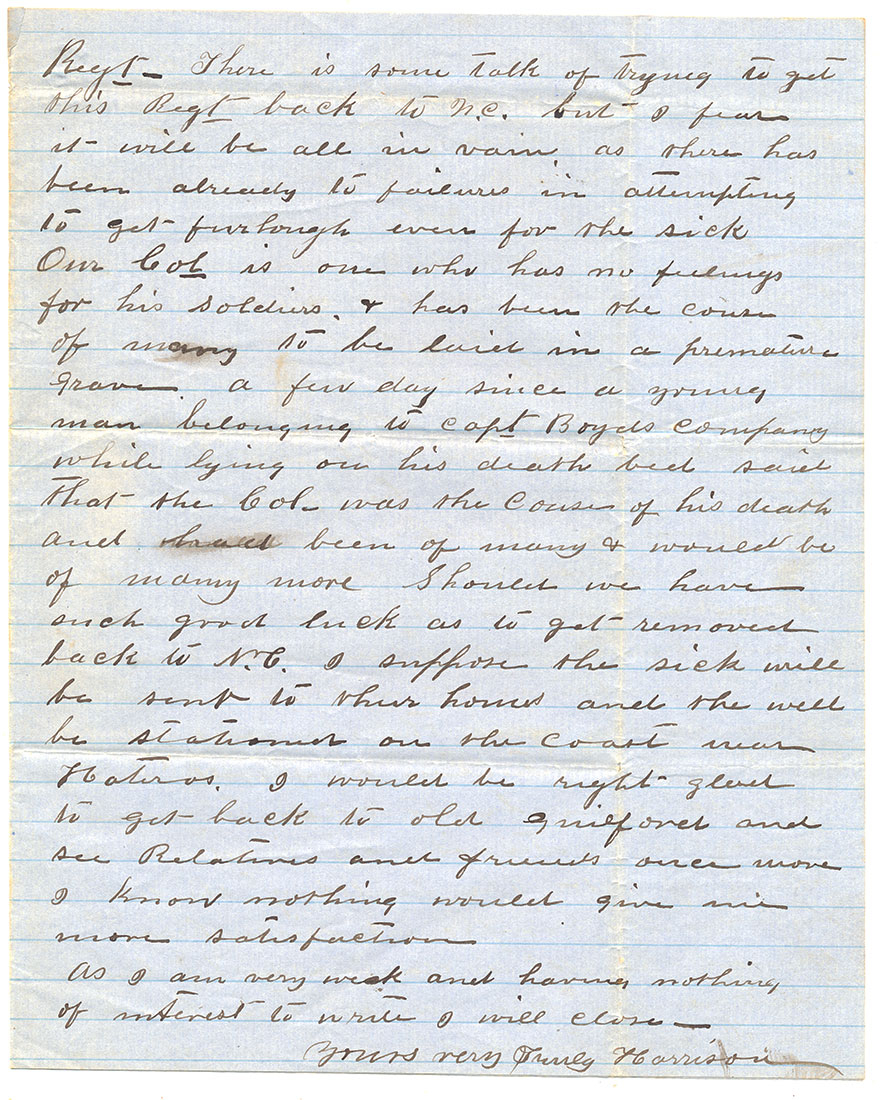 Regt - There is some talk of trying to get
this Regt back to N.C. but I fear
it will be all in vain as there has
been already to failures in attempting
to get furlough even for the sick
Our Col is one who has no feelings
for his soldiers. & has been the couse
of many to be laid in a premature
grave. a few day since a young
man belonging to Capt Boyds company
while lying on his death bed said
that the Col- was the couse of his death
and had been of many & would be
of many more Should we have
such good luck as to get removed
back to N.C. I suppose the sick will
be sent to thur homes and the well
be stationed on the coast near
Hateros. I would be right glad
to get back to old guilford and
see Relatives and friends once more
I know nothing would give me
more satisfaction
As I am very week and having nothing
of interest to write I will close -
Yours very Truly Harrison